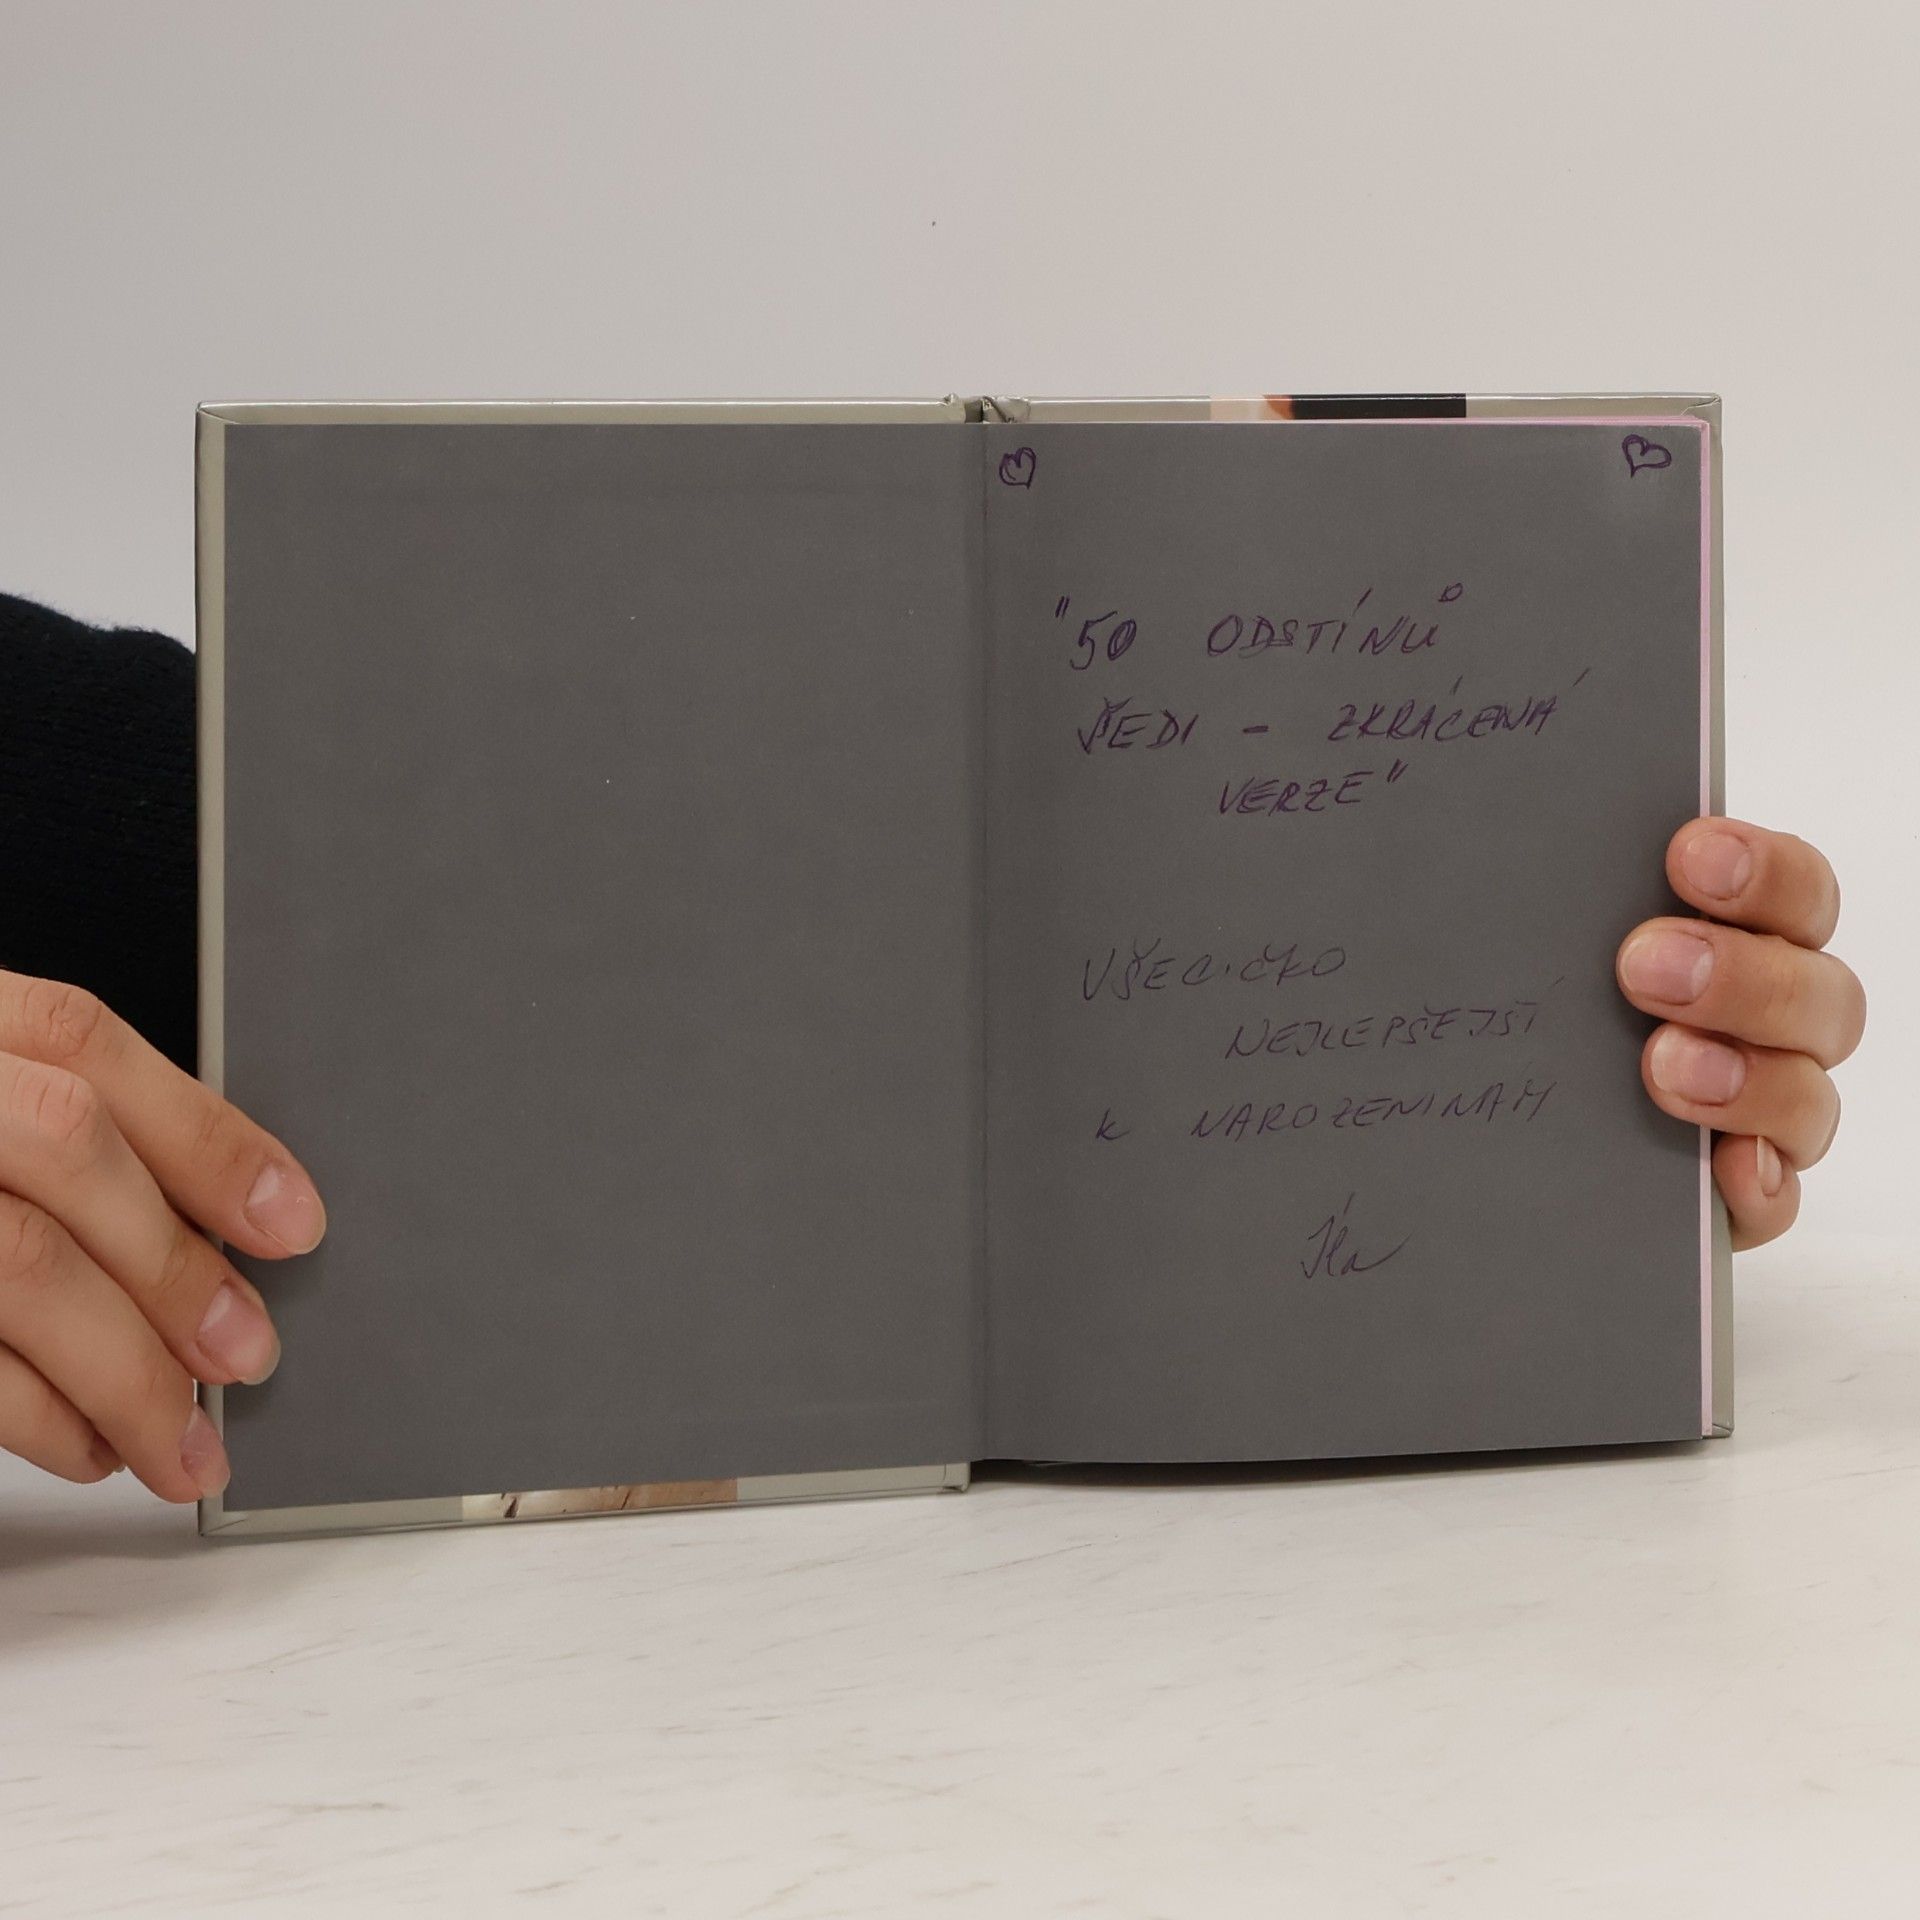 "50 ODSTÍNŮ
ŠEDI - ZKRÁCENÁ
VERZE"
VŠECIČKO
NEJLEPŠEJŠÍ
K NAROZENINÁM